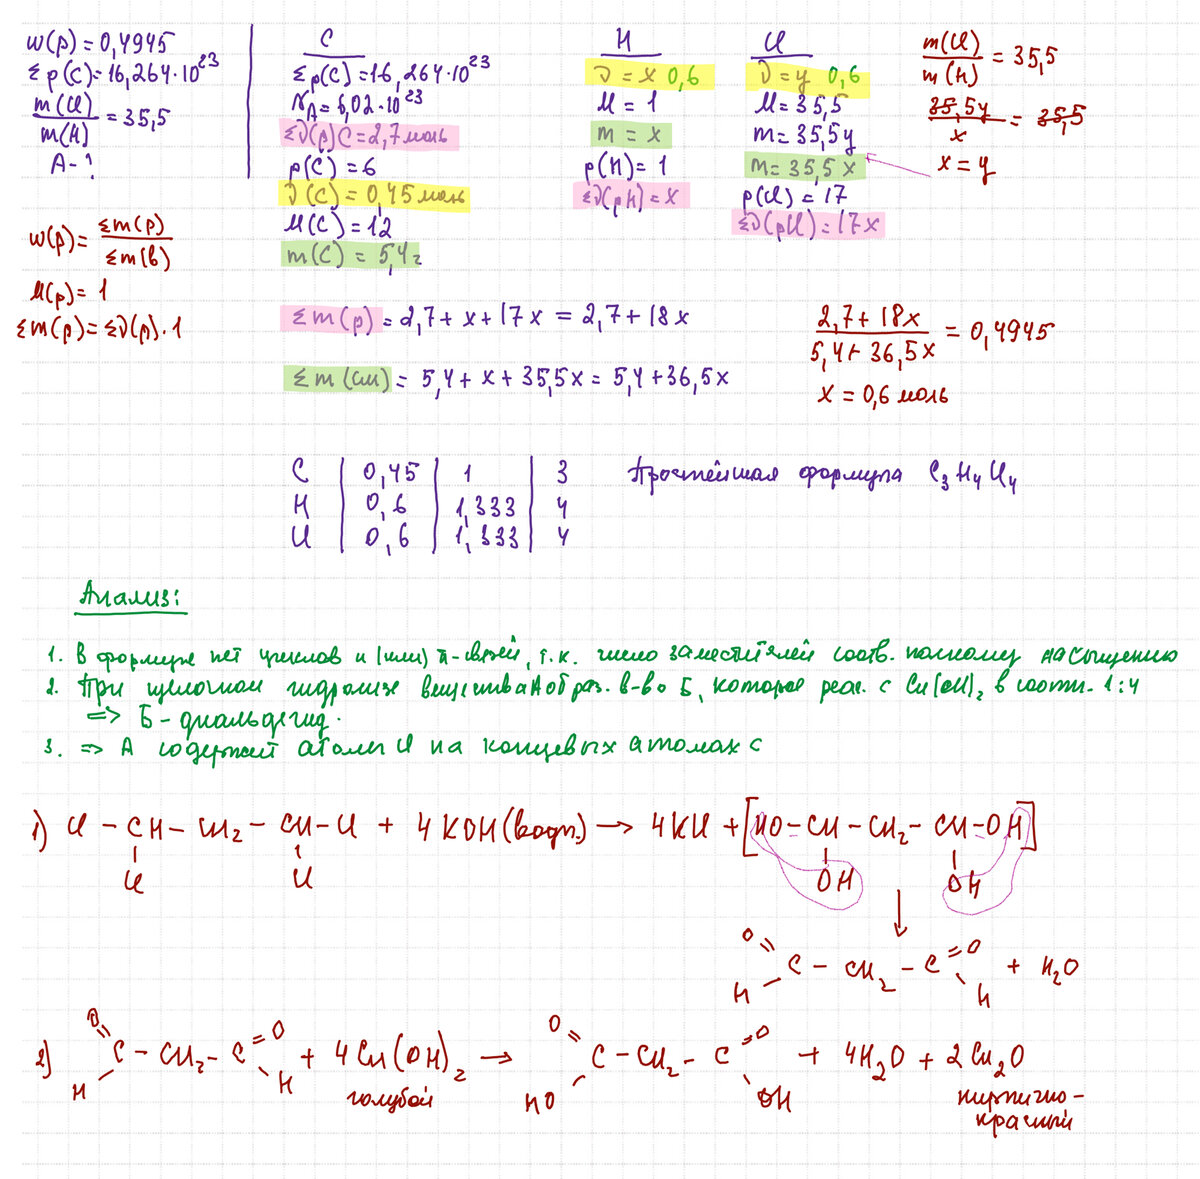 w(p) = 0,4945
Σp(C) = 16,264·10²³
m(Cl)/m(H) = 35,5
A - ?
w(p) = Σm(p)/Σm(в)
M(p) = 1
Σm(p) = Σν(p)·1
C
Σp(C) = 16,264·10²³
N_A = 6,02·10²³
Σν(p)C = 2,7 моль
p(C) = 6
ν(C) = 0,45 моль
M(C) = 12
m(C) = 5,4 г
H
ν = x 0,6
M = 1
m = x
p(H) = 1
Σν(pH) = x
Cl
ν = y 0,6
M = 35,5
m = 35,5y
m = 35,5x
p(Cl) = 17
Σν(pCl) = 17x
m(Cl)/m(H) = 35,5
35,5y/x = 35,5
x = y
Σm(p) = 2,7 + x + 17x = 2,7 + 18x
Σm(см) = 5,4 + x + 35,5x = 5,4 + 36,5x
(2,7 + 18x)/(5,4 + 36,5x) = 0,4945
x = 0,6 моль
C | 0,45 | 1 | 3 Простейшая формула C₃H₄Cl₄
H | 0,6 | 1,333 | 4
Cl | 0,6 | 1,333 | 4
Анализ:
1. В формуле нет циклов и (или) π-связей, т.к. число заместителей соотв. полному насыщению
2. При щелочном гидролизе вещества А обр аз. в-во Б, которое реаг. с Cu(OH)₂ в соотн. 1:4
=> Б - диальдегид.
3. => А содержит атомы Cl на концевых атомах C
1) Cl - CH - CH₂ - CH - Cl + 4KOH(водн.) → 4KCl + [HO - CH - CH₂ - CH - OH]
Cl Cl OH OH
↓
O O
C - CH₂ - C + H₂O
H H
O O O O
2) C - CH₂ - C + 4Cu(OH)₂ → C - CH₂ - C + 4H₂O + 2Cu₂O
H H голубой HO OH кирпично-
красный